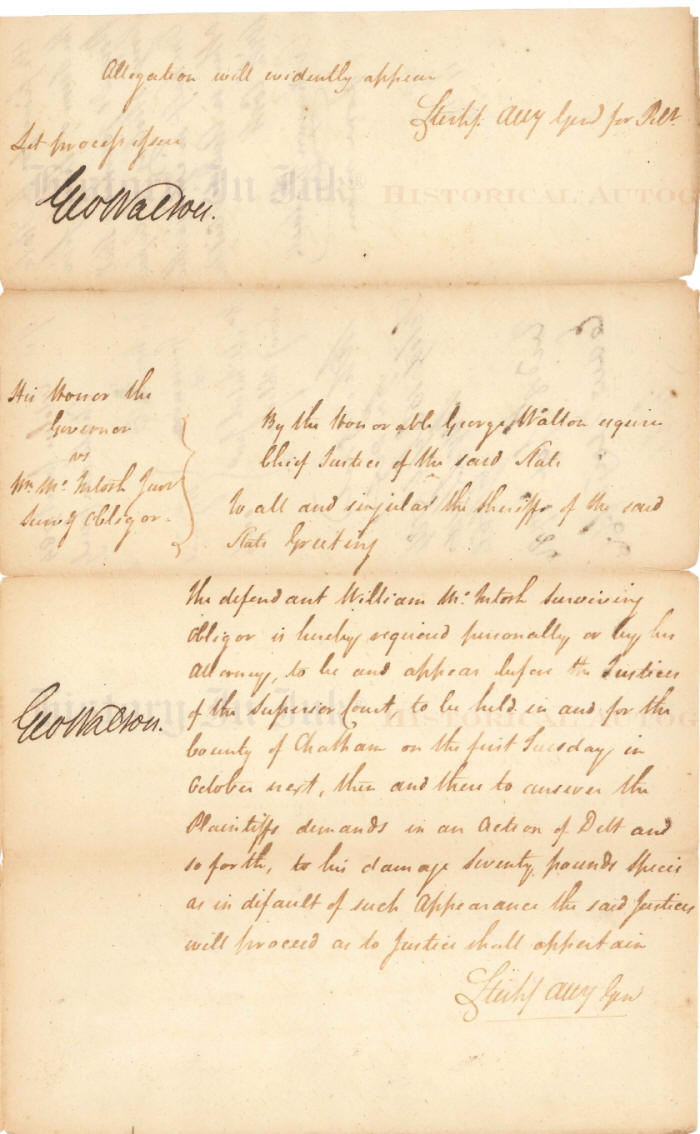 Allegation will evidently appear
Stirk Atty Genl for Pltf
Let process issue
Geo Walton.
History In Ink® HISTORICAL AUTOG
His Honor the
Governor
vs
Wm. Mc. Intosh Junr
Survg Obligor.
By the Honorable George Walton esquire
Chief Justice of the said State
To all and singular the Sheriffs of the said
State Greeting
The defendant William Mc. Intosh surviving
obligor is hereby required personally or by his
Attorney, to be and appear before the Justices
of the Superior Court, to be held in and for the
County of Chatham on the first Tuesday in
October next, then and there to answer the
Plaintiffs demands in an Action of Debt and
so forth, to his damage Seventy pounds specie
as in default of such Appearance the said Justices
will proceed as to Justice shall appertain
Geo Walton.
History In Ink HISTORICAL AUTOG
Stirk Atty Gen